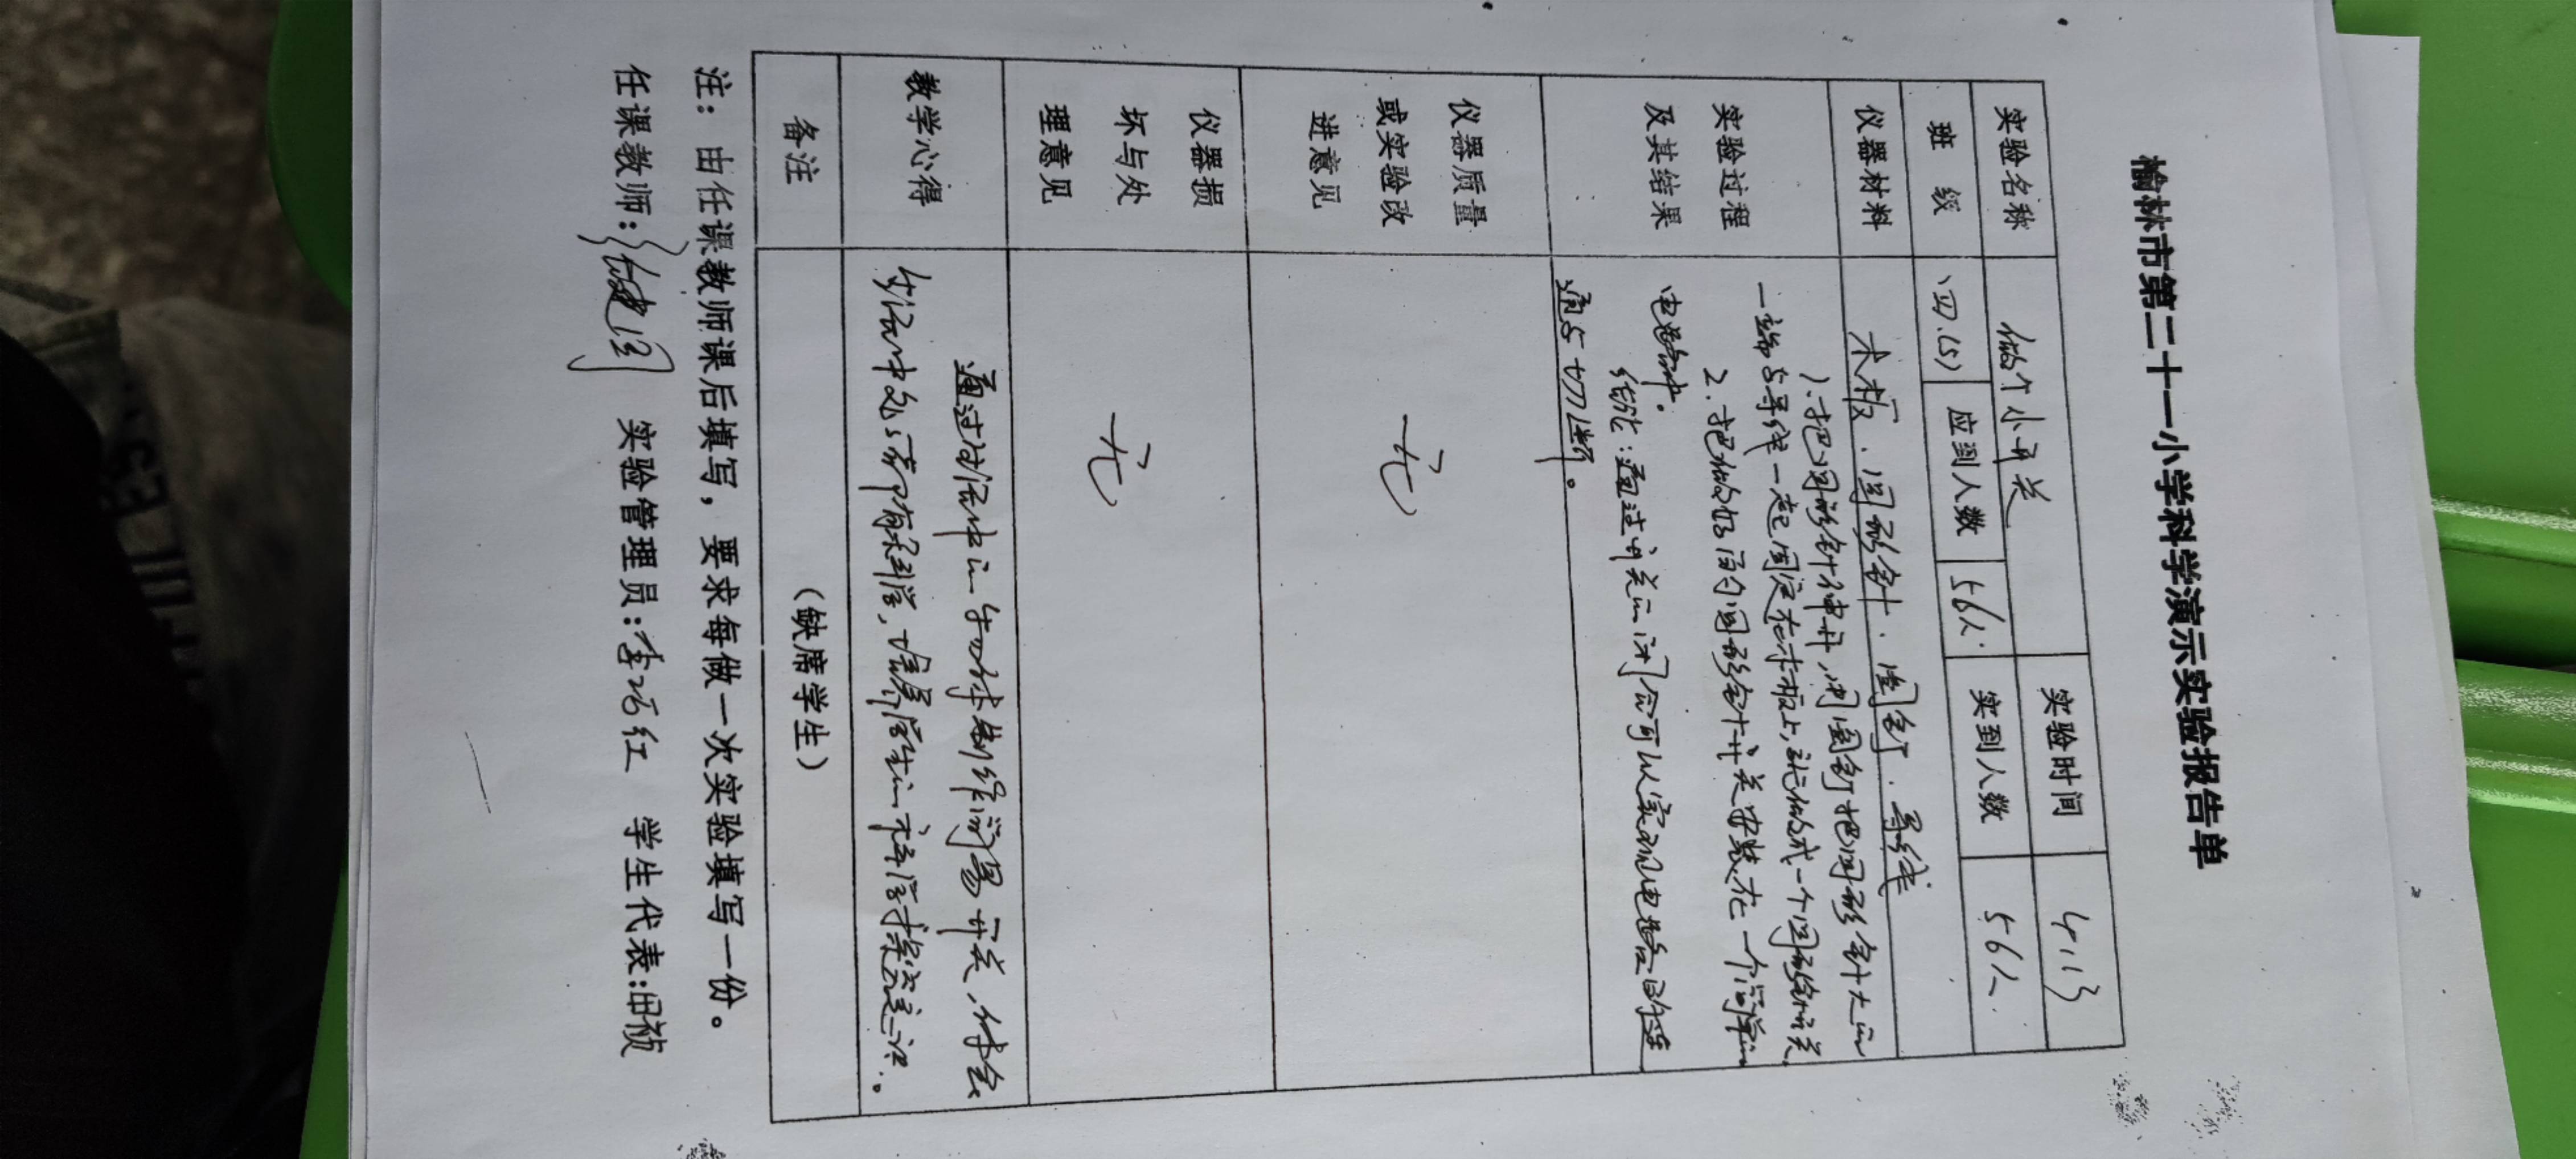 榆林市第二十一小学科学演示实验报告单
实验名称 做个小开关 实验时间 4.13
班 级 四.(5) 应到人数 56人. 实到人数 56人.
仪器材料 木板、回形针、图钉、导线
实验过程
及其结果
1.把回形针伸开,用图钉把回形针大的
一端与导线一起固定在木板上,就做成一个回形针开关
2.把做好的回形针开关安装在一个简单的
电路中。
结论:通过开关的闭合可以实现电路的接
通与切断。
仪器质量
或实验改
进意见
无
仪器损
坏与处
理意见
无
教学心得
通过生活中的 材料制作简易开关,体会
生活中处处都有科学,培养学生的 科学探究意识。
备注 (缺席学生)
注:由任课教师课后填写,要求每做一次实验填写一份。
任课教师: 实验管理员: 红 学生代表:田祯